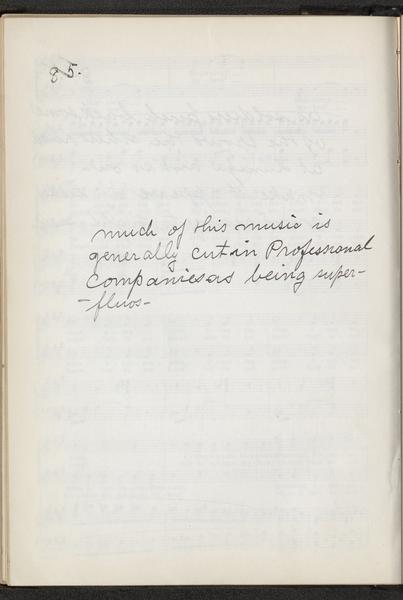 85.
much of this music is
generally cut in Professional
Companies as being super-
-fluos-